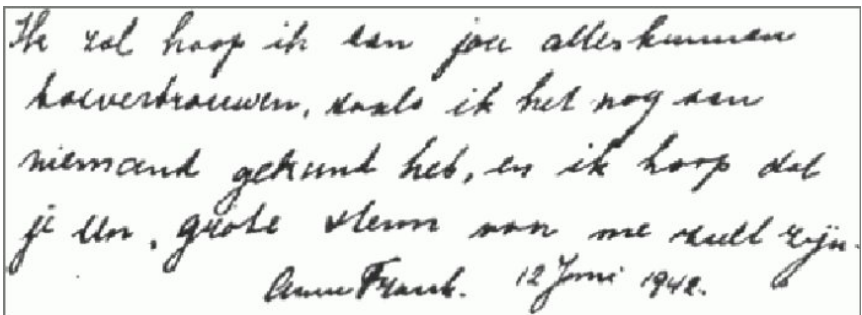 Ik zal hoop ik aan jou alles kunnen
toevertrouwen, zoals ik het nog aan
niemand gekund heb, en ik hoop dat
je een, grote steun van me zult zijn.
Anne Frank. 12 Juni 1942.